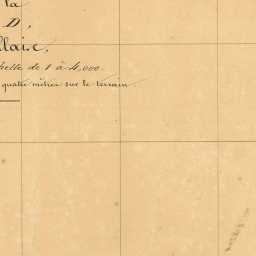 la
D,
llaise.
helle de 1 à 4,000.
quatre mètres sur le terrain.